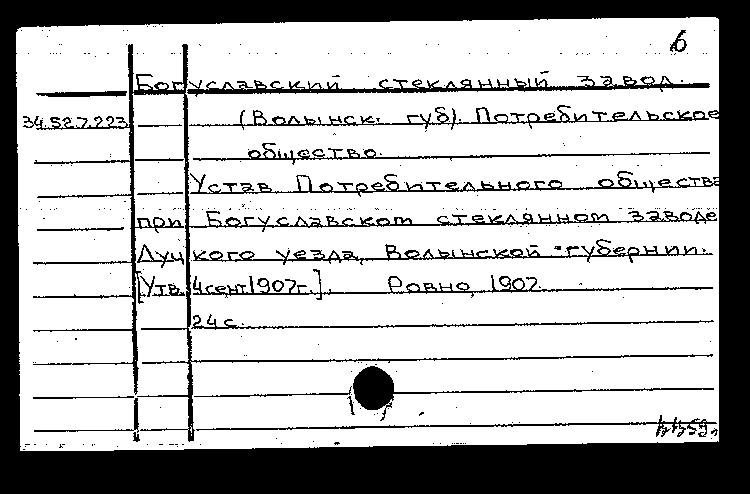 6
Богуславский стеклянный завод.
34.52.7.223 (Волынск. губ). Потребительское
общество.
Устав Потребительного общества
при Богуславском стеклянном заводе
Луцкого уезда, Волынской губернии.
[Утв. 4 сент 1907г.]. Ровно, 1907.
24 с.